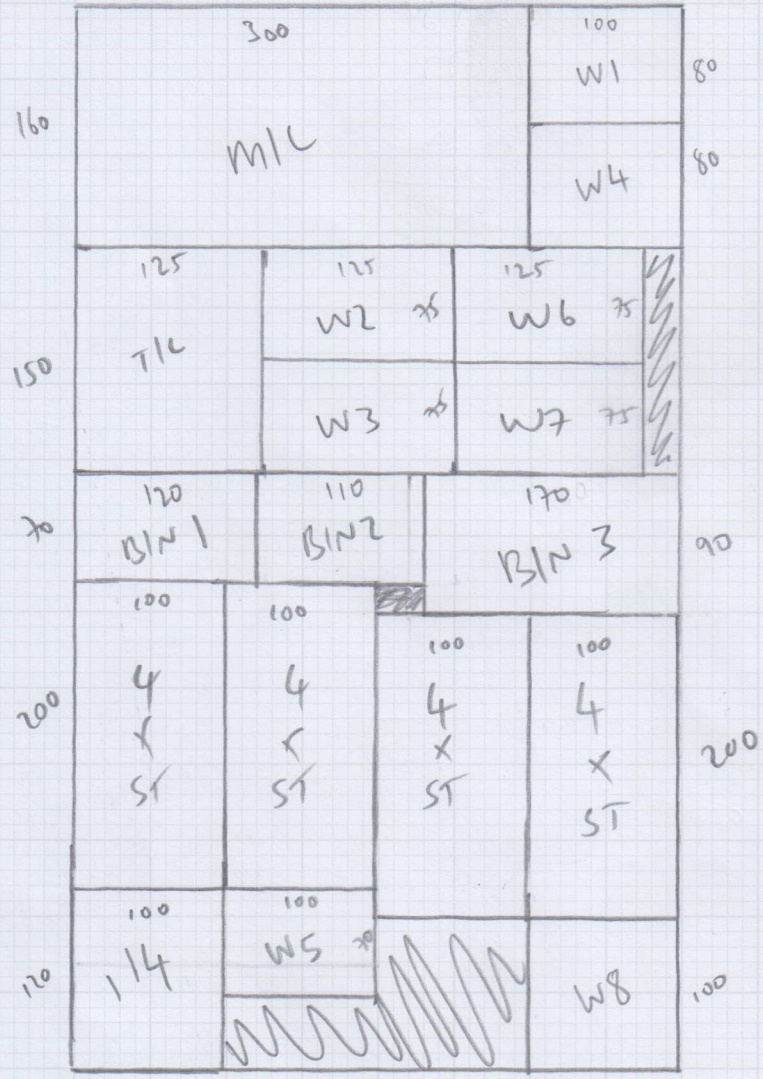 300
100
W1
80
160
M/L
W4
80
125
125
125
W2
75
W6
75
150
T/L
W3
75
W7
75
120
110
170
70
BIN 1
BIN 2
BIN 3
90
100
100
100
100
4
4
4
4
x
x
x
x
ST
ST
ST
ST
200
200
100
100
W5
70
W8
120
100